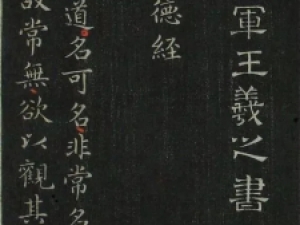 軍王羲之書
德経
道名可名非常名
故常無欲以觀其